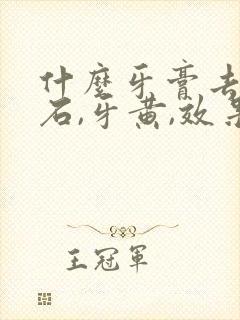 什麼牙膏去
石,牙黄,效果
王冠軍